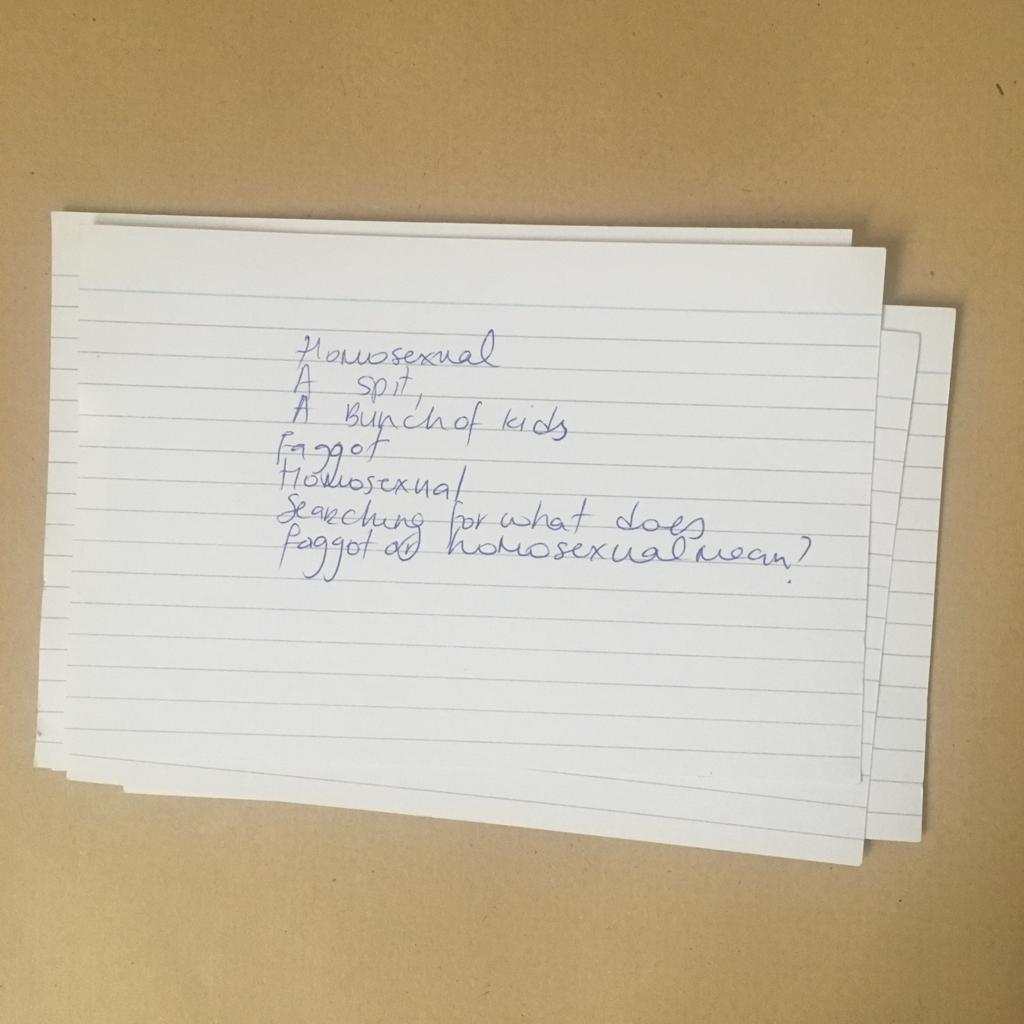 Homosexual
A spit,
A Bunch of kids
Faggot
Homosexual
Searching for what does
faggot or homosexual mean?